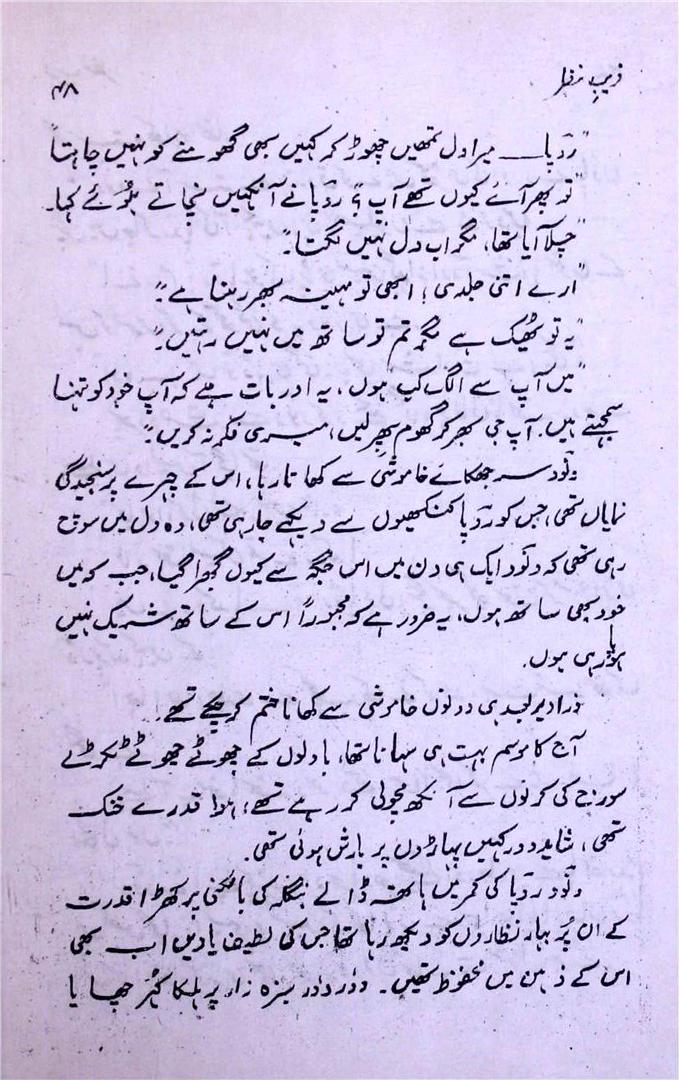 فریبِ نظر
۴۸
"روپا ــــ میرا دل تمھیں چھوڑ کر کہیں بھی گھومنے کو نہیں چاہتا"
"تو پھر آئے کیوں تھے آپ؟" روپا نے آنکھیں نچاتے ہوئے کہا۔
"چلا آیا تھا، مگر اب دل نہیں لگتا۔"
"ارے اتنی جلدی! ابھی تو مہینہ بھر رہنا ہے۔"
"یہ تو ٹھیک ہے مگر تم تو ساتھ میں نہیں رہتیں۔"
"میں آپ سے الگ کب ہوں، یہ اور بات ہے کہ آپ خود کو تنہا
سمجھتے ہیں۔ آپ جی بھر کر گھوم پھر لیں، میری فکر نہ کریں۔"
ونود سر جھکائے خاموشی سے کھاتا رہا، اس کے چہرے پر سنجیدگی
نمایاں تھی، جس کو روپا کنکھیوں سے دیکھے جا رہی تھی، وہ دل میں سوچ
رہی تھی کہ ونود ایک ہی دن میں اس جگہ سے کیوں گھبرا گیا، جب کہ میں
خود بھی ساتھ ہوں، یہ ضرور ہے کہ مجبوراً اس کے ساتھ شریک نہیں
ہو پا رہی ہوں۔
ذرا دیر بعد ہی دونوں خاموشی سے کھانا ختم کر چکے تھے۔
آج کا موسم بہت ہی سہانا تھا، بادلوں کے چھوٹے چھوٹے ٹکڑے
سورج کی کرنوں سے آنکھ مچولی کر رہے تھے؛ ہوا قدرے خنک
تھی، شاید دور کہیں پہاڑوں پر بارش ہوئی تھی۔
ونود روپا کی کمر میں ہاتھ ڈالے بنگلہ کی بالکنی پر کھڑا قدرت
کے ان پُر بہار نظاروں کو دیکھ رہا تھا جس کی لطیف یادیں اب بھی
اس کے ذہن میں محفوظ تھیں۔ دور دور سبزہ زار پر ہلکا کہر چھایا